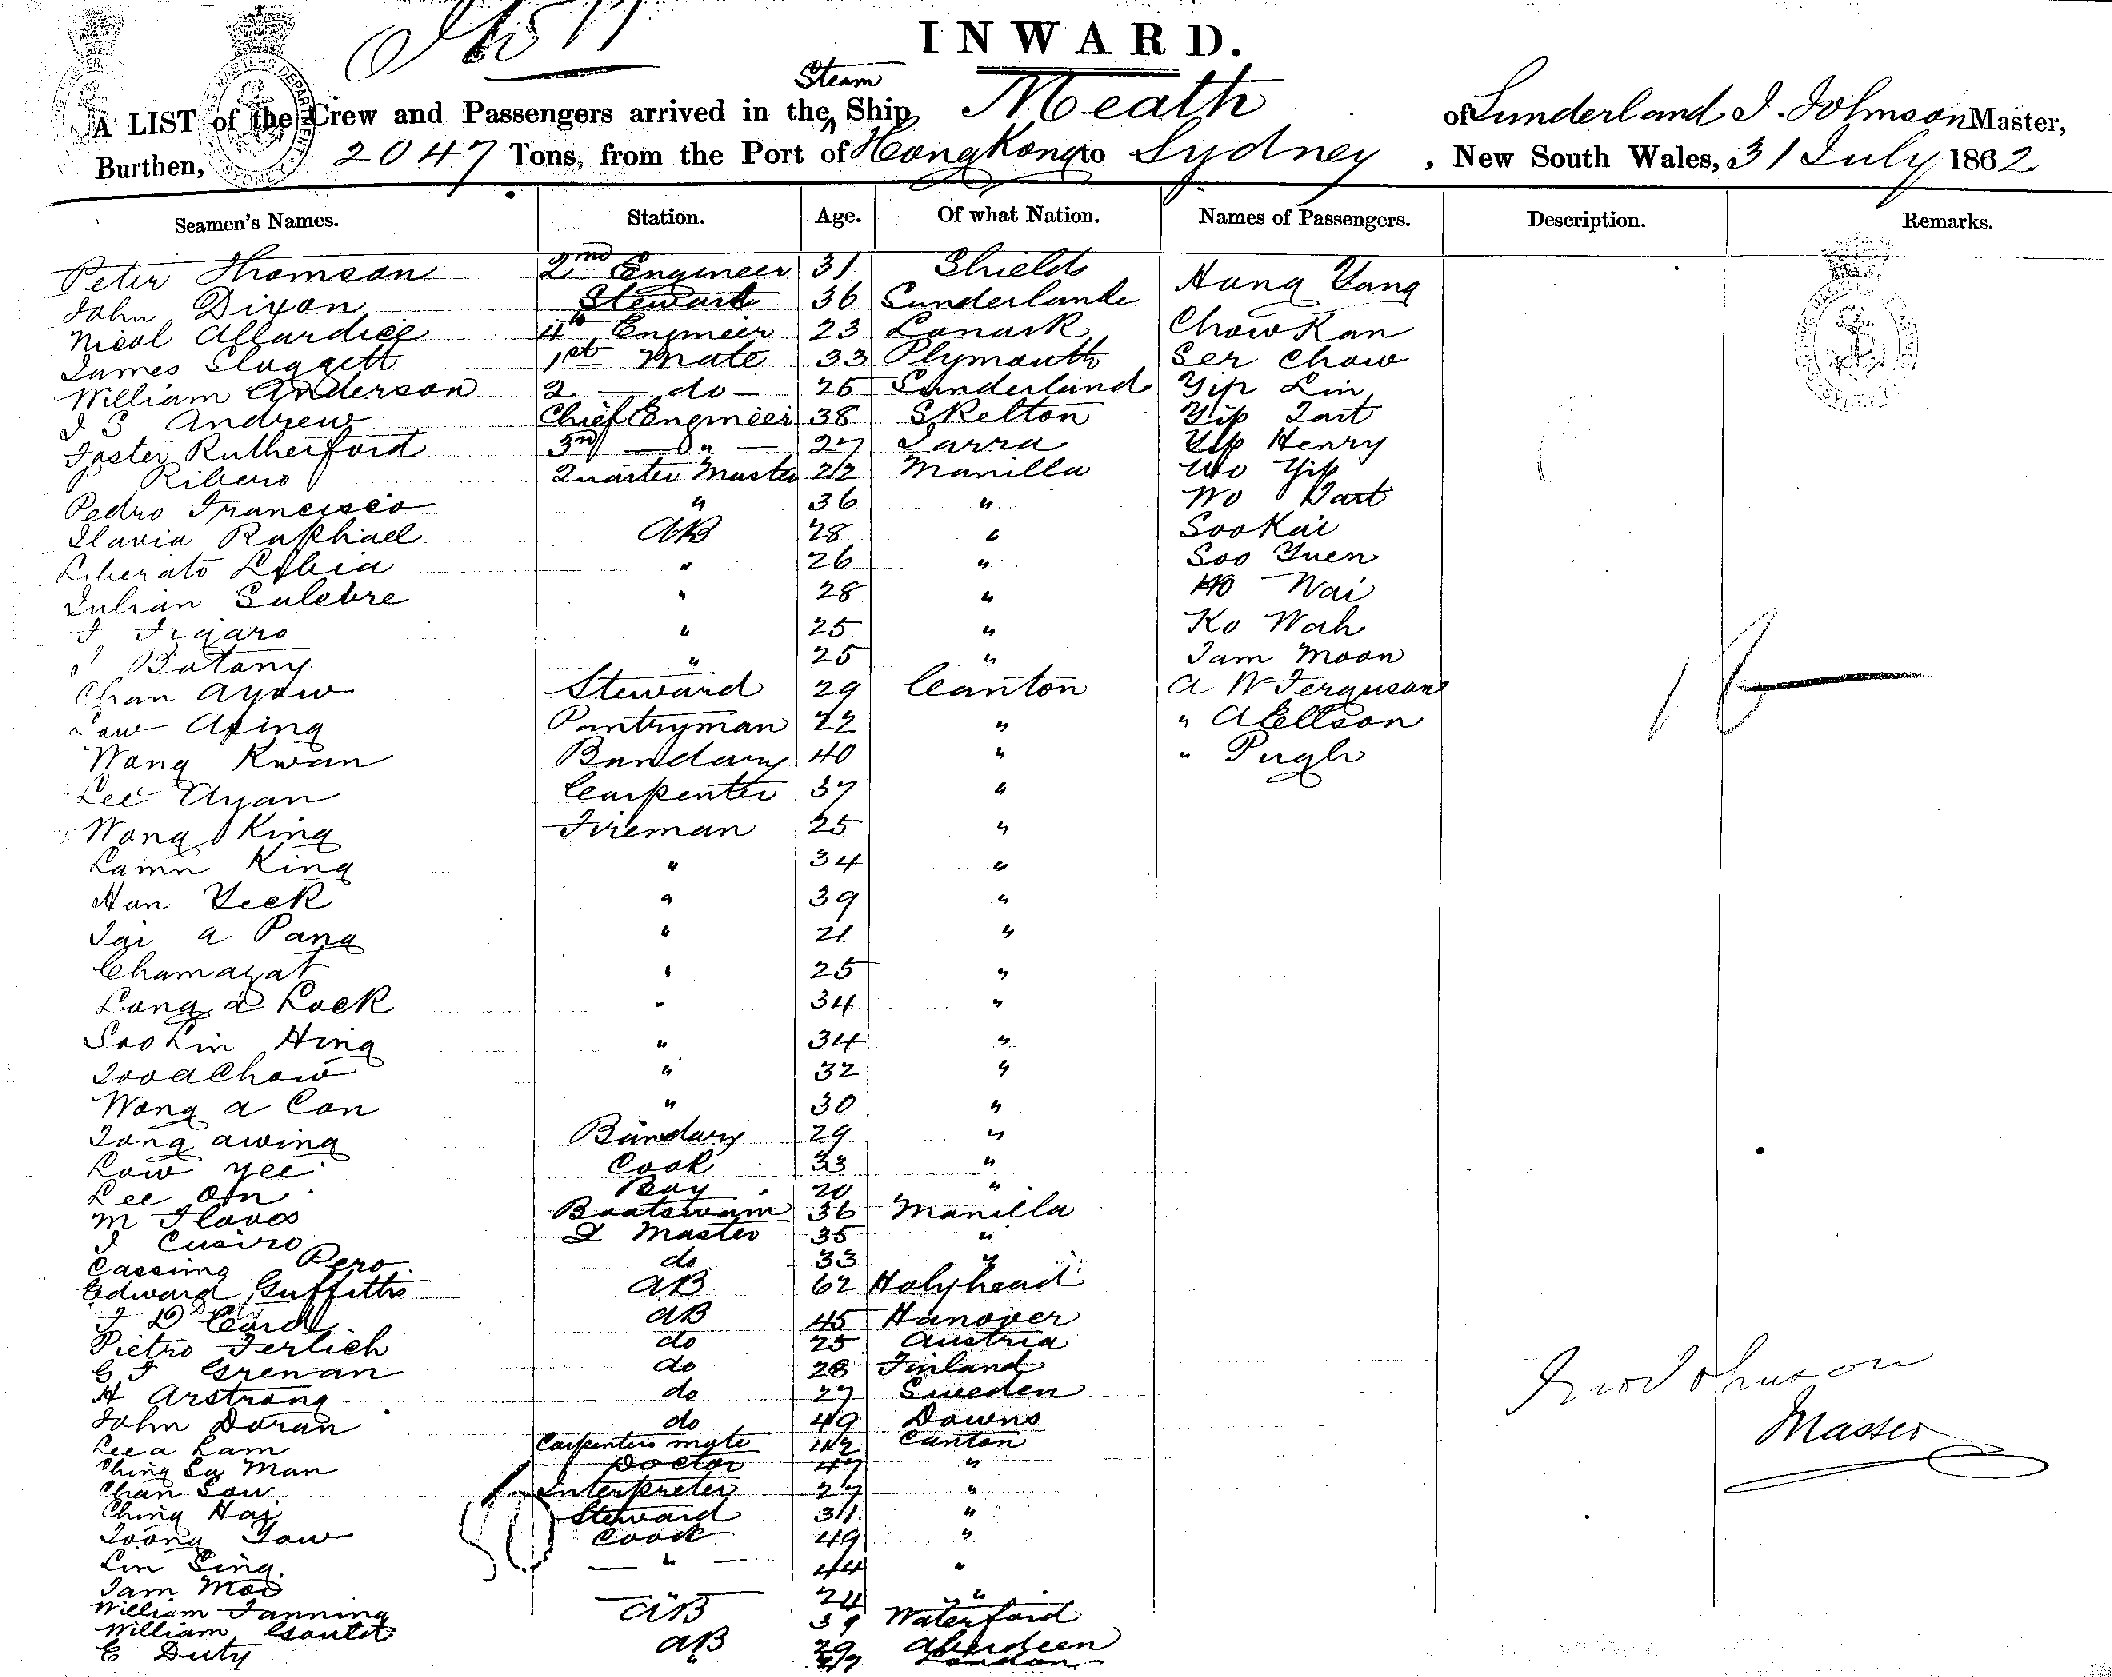 INWARD.
A LIST of the Crew and Passengers arrived in the Steam Ship, Meath of Sunderland J. Johnson Master,
Burthen, 2047 Tons, from the Port of Hong Kong to Sydney, New South Wales, 31 July 1862
Seamen's Names. Station. Age. Of what Nation. Names of Passengers. Description. Remarks.
Peter Thomson 2nd Engineer 31 Shields Hang Yang
John Dixon Steward 36 Sunderland
Nicol Allardice 4th Engineer 23 Lanark Chow Kan
James Sluggett 1st Mate 33 Plymouth Ser Chow
William Anderson 2 do 25 Sunderland Yip Lin
J S Andrew Chief Engineer 38 Skelton Yip Tart
Foster Rutherford 3rd Do " 27 Jarra Yip Henry
P Ribero Quarter Master 22 Manilla Wo Yip
Pedro Francisco " 36 " Wo Tart
Flavia Raphael AB 28 " Soo Kai
Liberato Libia " 26 " Soo Yuen
Julian Salebre " 28 " Ho Wai
J Figaro " 25 " Ko Wah
Batany " 25 " Tam Moon
Chan Ayow Steward 29 Canton A W Ferguson
Low Aping Pantryman 22 " " A Ellson
Wang Kwan Bandary 40 " " Pugh
Lee Ayan Carpenter 37 "
Wong King Fireman 25 "
Lamn King " 34 "
Han Yeek " 39 "
Tai a Pang " 21 "
Chamayat " 25 "
Lang a Lock " 34 "
Soo Lin Hing " 34 "
Too a Chow " 32 "
Wong a Con " 30 "
Tong awing Bandary 29 "
Low Yee Cook 33 "
Lee On Boy 20 "
M Flavos Boatswain 36 Manilla
J Cusiro Q Master 35 "
Cassimo Pero do 33 "
Edward Griffiths AB 62 Holyhead
J D Card AB 45 Hanover
Pietro Ferlich do 25 Austria
G F Grenan do 28 Finland
H Arstrong do 27 Sweden
John Doran do 49 Downs
Lee a Lam Carpenters mate 42 Canton
Ching Sa Man Doctor 47 "
Chan Sow Interpreter 27 "
Ching Hai Steward 31 "
Toong Tow Cook 49 "
Lin Sing " 44 "
Tam Moo " 24 "
William Fanning AB 39 Waterford
William Gould AB 29 Aberdeen
E Duty " 27 London
16
50
Jno Johnson
Master